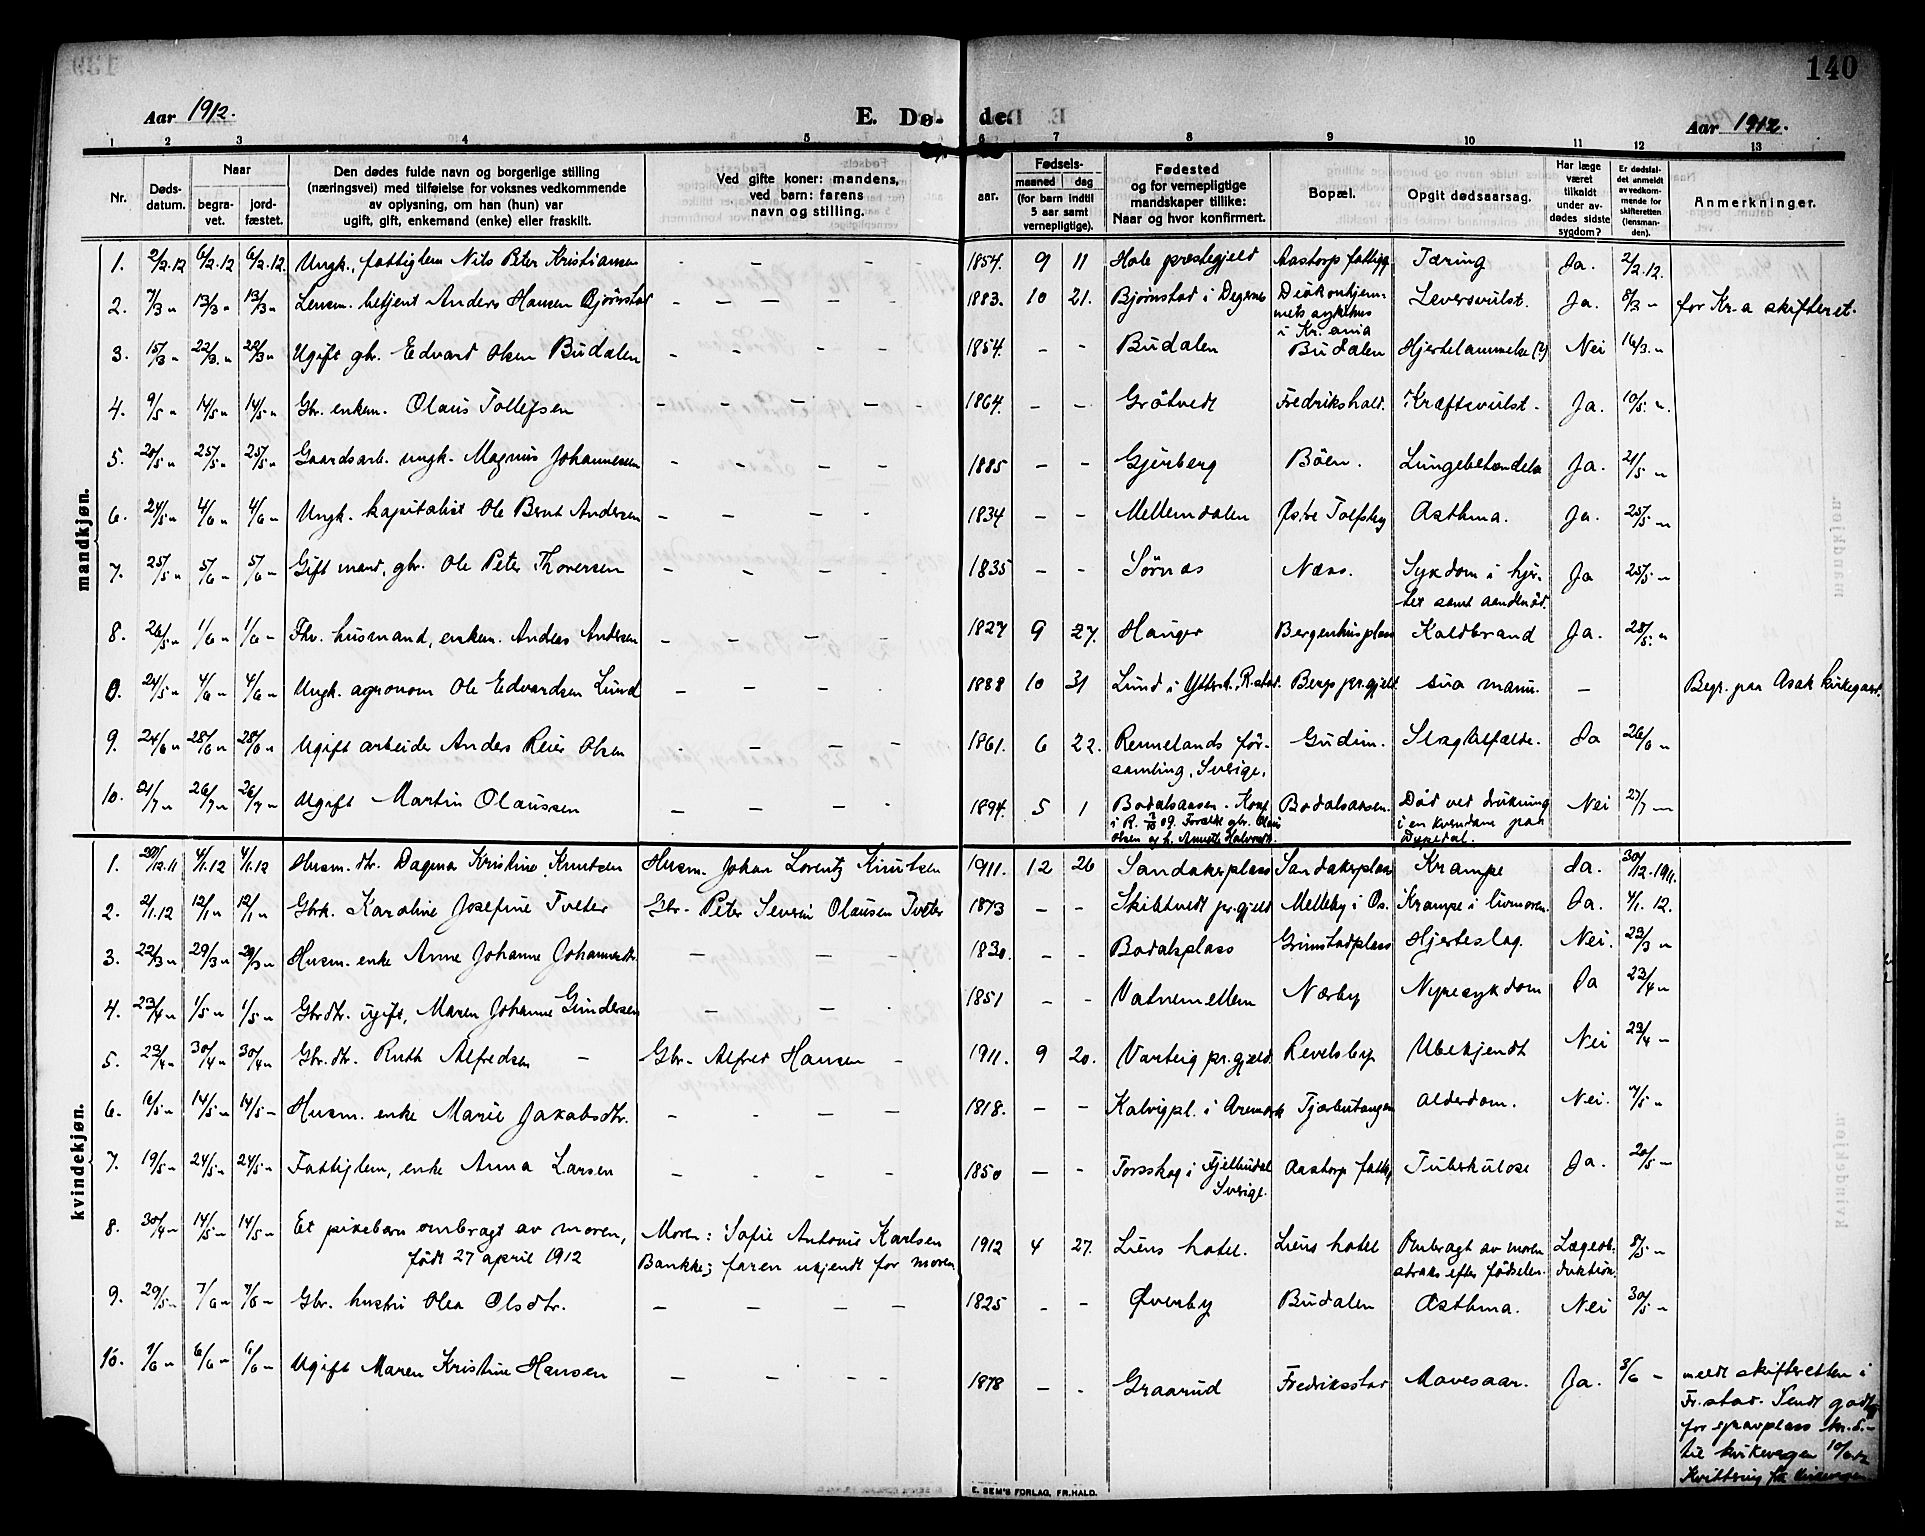 140
Aar 1912.
E. Dø- de.
Aar 1912.
1 2 3 4 5 6 7 8 9 10 11 12 13
Nr. Døds-datum. Naar begra-vet. jord-fæstet. Den dødes fulde navn og borgerlige stilling (næringsvei) med tilføielse for voksnes vedkommende av oplysning, om han (hun) var ugift, gift, enkemand (enke) eller fraskilt. Ved gifte koner: mandens, ved barn: farens navn og stilling. Fødsels- aar. maaned dag (for barn indtil 5 aar samt vernepligtige). Fødested og for vernepligtige mandskaper tillike: Naar og hvor konfirmert. Bopæl. Opgit dødsaarsag. Har læge været tilkaldt under av-dødes sidste sygdom? Er dødsfal-det anmeldt av vedkom-mende for skifteretten (lensman-den). Anmerkninger.
mandkjøn.
1. 2/2.12 6/2.12 6/2.12. Ungk., fattiglem Nils Peter Kristiansen - - - - 1854. 9 11 Hole præstegjeld Aastorp fattigg. Tæring Ja. 2/2.12.
2. 7/3 " 13/3 " 13/3 " Lensm. betjent Anders Hansen Bjørnstad - - - - - 1883. 10 21. Bjørnstad i Degernes Diakonhjem-mets sykehus i Kr.ania Leversvulst. Ja. 8/3 - for Kr.a skifteret.
3. 15/3 " 22/3. " 22/3 " Ugift gbr. Edvard Olsen Budalen - - - - 1854. - - Budalen Budalen Hjertelammelse (?) Nei 16/3. "
4. 9/5 " 14/5 " 14/5 " Gbr. enkem. Olaus Tollefsen - - - - - 1864. - - Gråtvedt Fredrikshald. Kræftsvulst. Ja. 10/5. ".
5. 20/5 " 25/5 " 25/5 " Gaardsarb. ungk. Magnus Johannesen - - - - 1885 - - Gjerberg Böen. Lungebetændelse Ja. 21/5 "
6. 24/5 " 4/6 " 4/6 " Ungk. kapitalist Ole Bernt Andersen - - - - 1834 - - Mellemdalen Østre Tolfsby Asthma. Ja. 25/5 "
7. 25/5 " 5/6 - 5/6 - Gift mand, gbr. Ole Peter Thoresen - - - - 1835 - - Sørnæs Næss. Sykdom i hjer-tet samt aandenød. Ja 25/5 -
8. 26/5 " 1/6 - 1/6 - Fhv. husmand, enkem. Anders Andersen - - - - 1827 9 27. Hauger Bergenhusplass Koldbrand Ja. 28/5. "
0. 24/5 " 4/6 - 4/6 - Ungk. agronom Ole Edvardsen Lund - - - - 1888 10 31 Lund i Ytterst., R.stad. Bergs pr.gjeld sua manu. - Begr. paa Asak kirkegaard.
9. 24/6 " 28/6 " 28/6 " Ugift arbeider Anders Reier Olsen - - - - 1861. 6 22. Rennelands för-samling, Sverige. Gudim. Slagtilfælde. Ja 26/6 -
10. 21/7 " 26/7 " 26/7 - Ugift Martin Olaussen - - - - 1894. 5 1 Bodalsaasen. Konf. i R. 09. Forældre gbr. Olaus Olsen og h. Annette Halvorsdt. Bodalsaasen. Död ved drukning i en kverndam paa Nei 27/7 -
kvindekjøn.
1. 30/12.11 4/1.12 4/1.12 Husm. dtr. Dagma Kristine Knutsen Husm. Johan Lorentz Knutsen 1911. 12 26 Sandakerplass Sandakerplass Krampe Ja. 30/12.1911.
2. 2/1.12 12/1 " 12/1 " Gbrk. Karoline Josefine Tveter Gbr. Peter Severin Olausen Tveter 1873 - - Skibtvedt pr.gjeld Melleby i Os. Krampe i livmoren. Ja. 4/1. 12.
3. 22/3 " 29/3 " 29/3 " Husm. enke Anne Johanne Johannesdtr. - - - 1830. - - Bodalsplass Grimstadplass Hjerteslag. Nei. 23/3 "
4. 23/4 " 1/5 " 1/5 " Gbrdtr. ugift, Maren Johanne Gundersen - - - 1851 - - Vatnemellem Nærby Nyresykdom Ja 23/4 "
5. 23/4 " 30/4 " 30/4 " Gbr.dtr. Ruth Alfredsen - Gbr. Alfred Hansen - 1911. 9 20. Varteig pr.gjeld Revelsby Ubekjendt Nei 23/4 -
6. 6/5 " 14/5 " 14/5 - Husm. enke Marie Jakobsdtr. - - - - 1818. - - Kalvigpl. i Aremark Tjærbutangen Alderdom. Nei. 7/5 "
7. 19/5 " 24/5 " 24/5 " Fattiglem, enke Anna Larsen - - - - 1850 - - Torsskog i Fjelbudal Sverige. Aastorp fattigg. Tuberkulose Ja. 20/5 -
8. 30/4 " 14/5 " 14/5 " Et pikebarn ombragt av moren, født 27 april 1912 Moren: Sofie Antonie Karlsen Bankke; faren ukjendt for moren 1912 4 27. Liens hotel. Liens hotel Ombragt av moren straks efter fødselen. Lægeob-duktion. 8/5 -
9. 29/5 " 7/6 " 7/6 " Gbr. hustru Olea Olsdtr. - - - - 1825 - - Øverby Budalen Asthma. Nei 30/5 -
10. 1/6 " 6/6 - 6/6 - Ugift Maren Kristine Hansen - - - - 1878 - - Graarud Fredriksstad Mavesaar. Ja. 3/6 - meldt skifteretten i
Fr.stad. Sendt
for gravplass kr. 5.-
til kirkevergen
Kvittering fra kirkevergen
E. SEM'S FORLAG, FR.HALD.